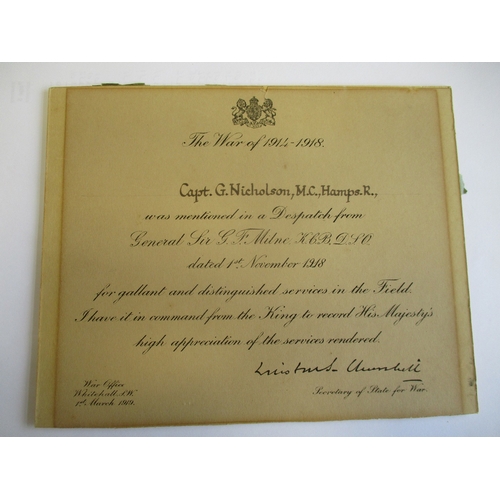 The War of 1914-1918.
Capt. G. Nicholson, M.C., Hamps.R.,
was mentioned in a Despatch from
General Sir G. F. Milne, K.C.B., D.S.O.
dated 1st November 1918
for gallant and distinguished services in the Field.
I have it in command from the King to record His Majesty's
high appreciation of the services rendered.
Winston S. Churchill
War Office
Whitehall, S.W.
1st March 1919.
Secretary of State for War.